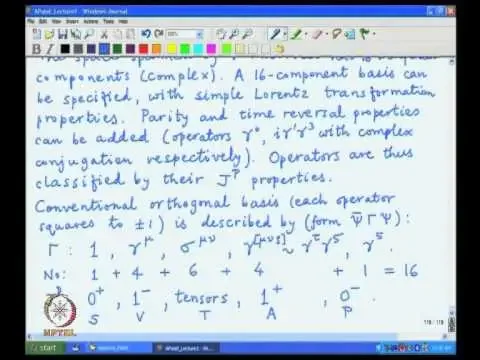 APaul_Lecture1 - Windows Journal
components (Complex). A 16-component basis can
be specified, with simple Lorentz transformation
properties. Parity and time reversal properties
can be added (operators γ⁰, iγ¹γ³ with complex
conjugation respectively). Operators are thus
classified by their Jᴾ properties.
Conventional orthogonal basis (each operator
squares to ±1) is described by (form Ψ̄ Γ Ψ) :
Γ : 1, γ^μ, σ^{μν}, γ^{[μνρ]} ~ γ^τ γ^5, γ^5.
No: 1 + 4 + 6 + 4 + 1 = 16
0⁺, 1⁻, tensors, 1⁺, 0⁻
S V T A P
NPTEL